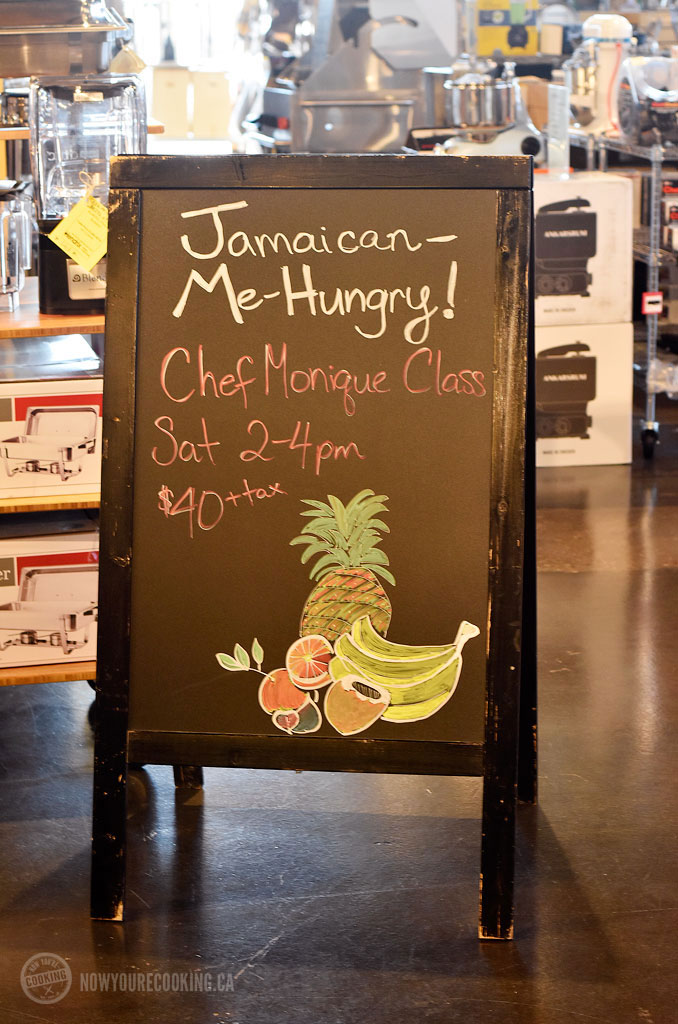 Jamaican-
Me-Hungry!
Chef Monique Class
Sat 2-4pm
$40 + tax
ANKARSRUM
ANKARSRUM
NOW YOU'RE
COOKING
NOWYOURECOOKING.CA